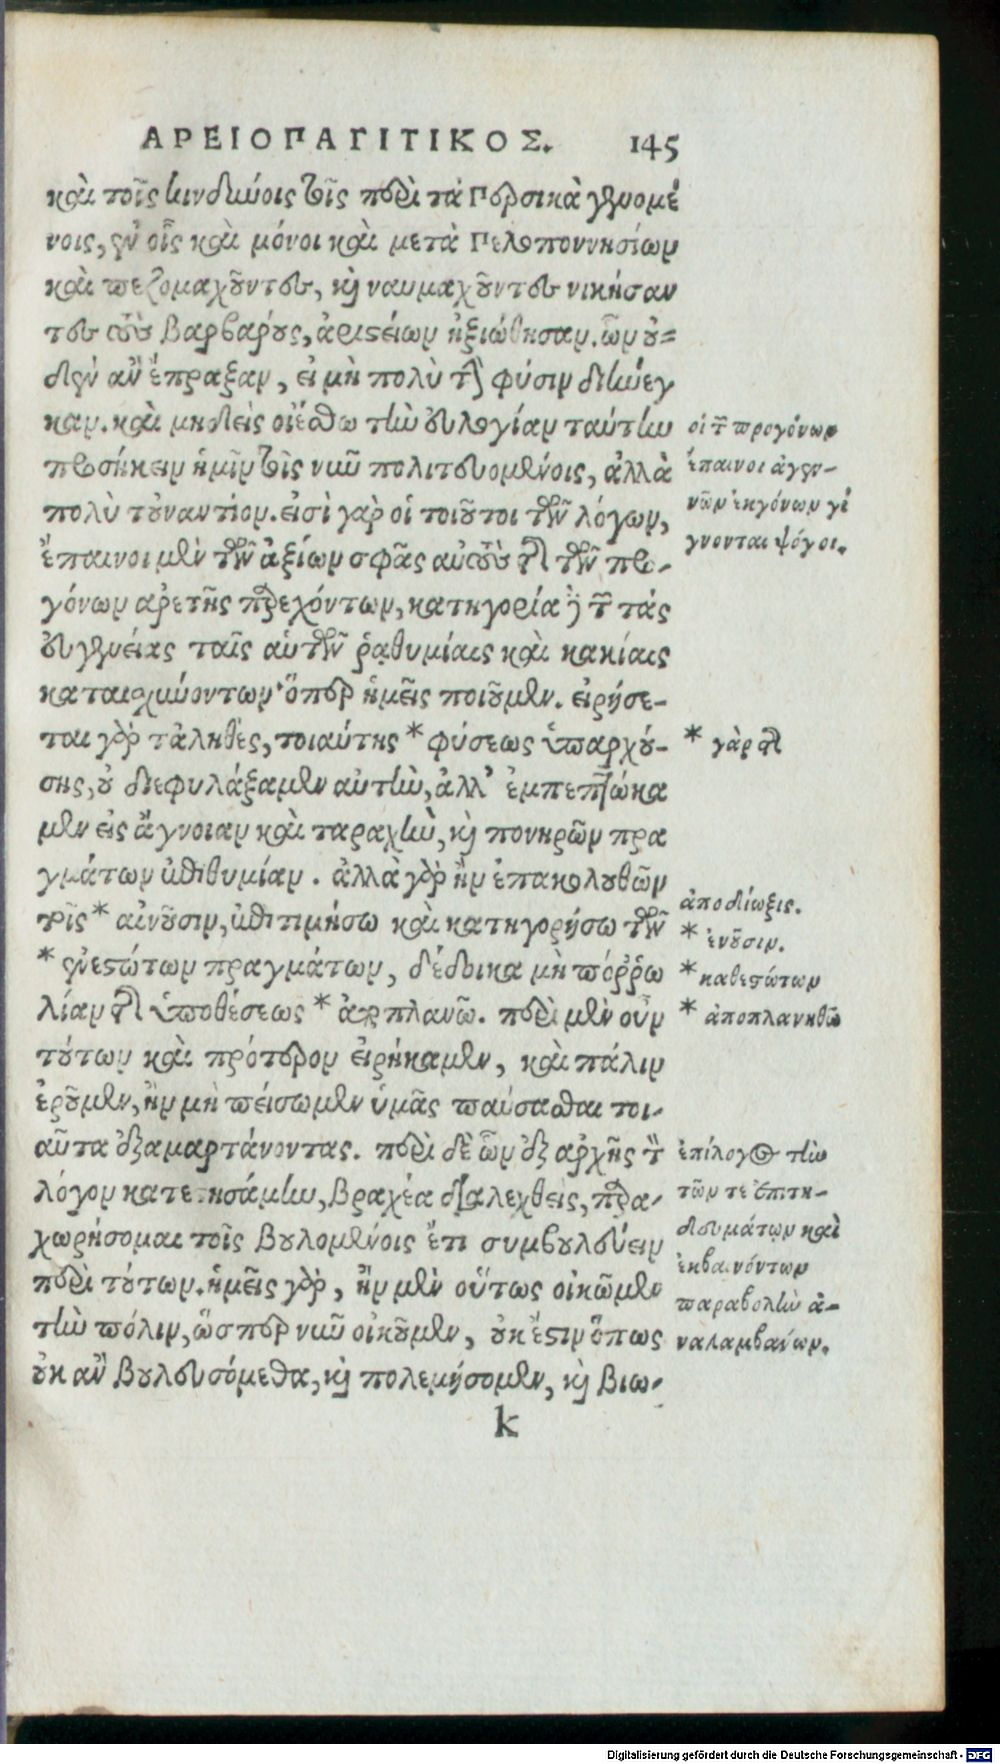 ΑΡΕΙΟΠΑΓΙΤΙΚΟΣ. 145
καὶ τοῖς κινδύνοις τοῖς περὶ τὰ Περσικὰ γενομέ
νοις, ἐν οἷς καὶ μόνοι καὶ μετὰ Πελοποννησίων
καὶ πεζομαχοῦντες, καὶ ναυμαχοῦντες νικήσαν
τες τοὺς βαρβάρους, ἀριστείων ἠξιώθησαν. ὧν οὐ=
δὲν ἂν ἔπραξαν, εἰ μὴ πολὺ τὴν φύσιν διήνεγ
καν. καὶ μηδεὶς οἰέσθω τὴν εὐλογίαν ταύτην
προσήκειν ἡμῖν τοῖς νῦν πολιτευομένοις, ἀλλὰ
πολὺ τοὐναντίον. εἰσὶ γὰρ οἱ τοιοῦτοι τῶν λόγων,
ἔπαινοι μὲν τῶν ἀξίων σφᾶς αὐτοὺς τῆς τῶν προ-
γόνων ἀρετῆς παρεχόντων, κατηγορία δὲ τῶν τὰς
εὐγενείας ταῖς αὑτῶν ῥαθυμίαις καὶ κακίαις
καταισχυνόντων· ὅπερ ἡμεῖς ποιοῦμεν. εἰρήσε-
ται γὰρ τἀληθὲς, τοιαύτης * φύσεως ὑπαρχού-
σης, οὐ διεφυλάξαμεν αὐτὴν, ἀλλ' ἐμπεπτώκα
μεν εἰς ἄγνοιαν καὶ ταραχὴν, καὶ πονηρῶν πρα
γμάτων ἐπιθυμίαν. ἀλλὰ γὰρ ἢν ἐπακολουθῶν
τοῖς * αἰνοῦσιν, ἐπιτιμήσω καὶ κατηγορήσω τῶν
* ἐνεστώτων πραγμάτων, δέδοικα μὴ πόῤῥω
λίαν τῆς ὑποθέσεως * ἀποπλανῶ. περὶ μὲν οὖν
τούτων καὶ πρότερον εἰρήκαμεν, καὶ πάλιν
ἐροῦμεν, ἢν μὴ πείσωμεν ὑμᾶς παύσασθαι τοι-
αῦτα ἐξαμαρτάνοντας. περὶ δὲ ὧν ἐξ ἀρχῆς τὸν
λόγον κατεστησάμην, βραχέα διαλεχθεὶς, παρα-
χωρήσομαι τοῖς βουλομένοις ἔτι συμβουλεύειν
περὶ τούτων. ἡμεῖς γὰρ, ἢν μὲν οὕτως οἰκῶμεν
τὴν πόλιν, ὥσπερ νῦν οἰκοῦμεν, οὐκ ἔστιν ὅπως
οὐκ ἂν βουλευσόμεθα, καὶ πολεμήσομεν, καὶ βιω-
k
οἱ τῶν προγόνων
ἔπαινοι ἀγεν-
νῶν ἐκγόνων γί
γνονται ψόγοι.
* γὰρ τῆς
ἀποδίωξις.
* ἐνοῦσιν.
* καθεστώτων
* ἀποπλανηθῶ
ἐπίλογος τὴν
τῶν τε ἐπιτη-
δευμάτων καὶ
ἐκβαινόντων
παραβολὴν ἀ-
ναλαμβάνων.
Digitalisierung gefördert durch die Deutsche Forschungsgemeinschaft - DFG